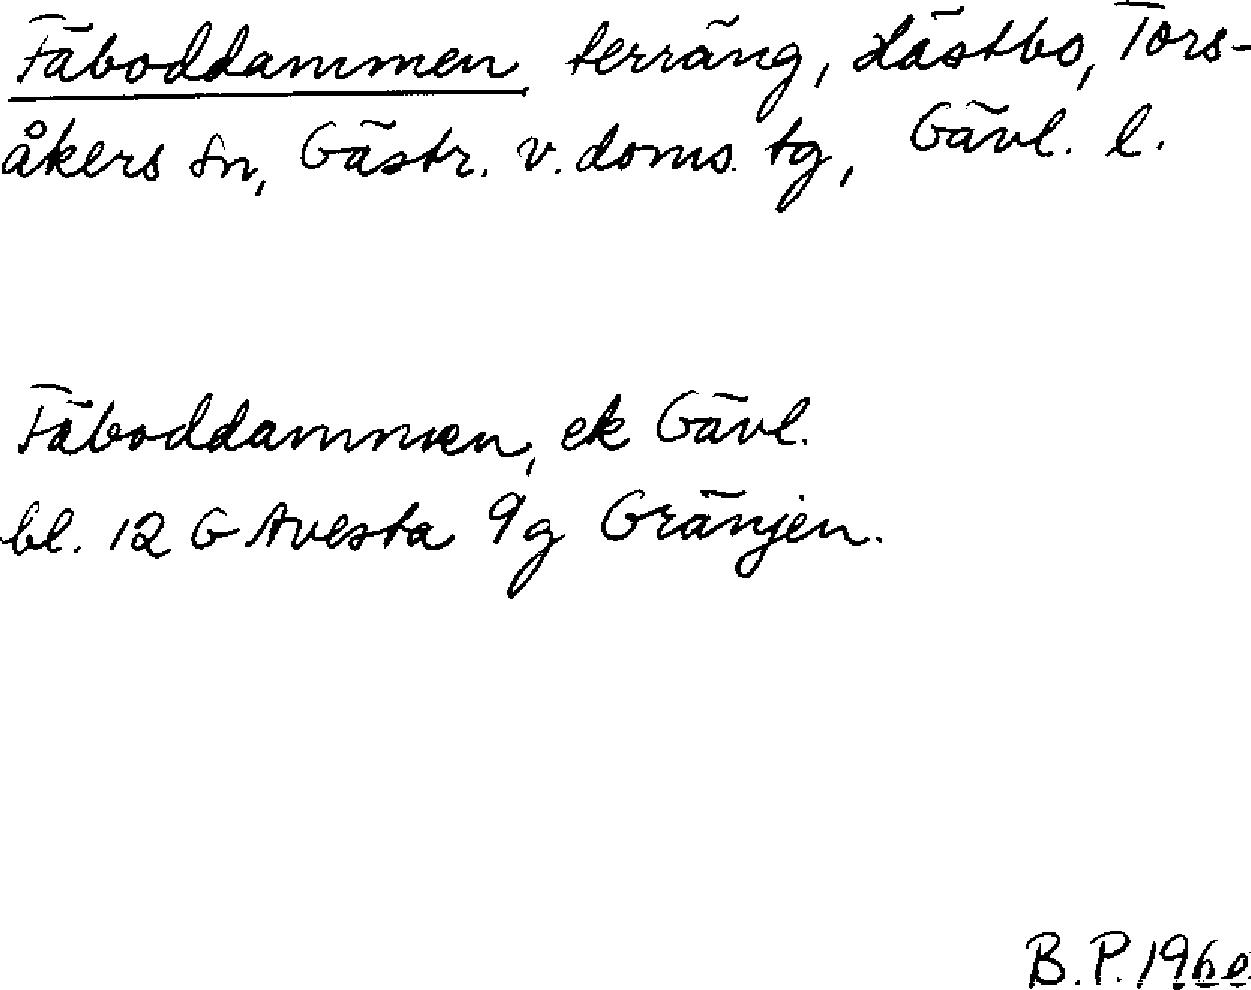 Fäboddammen terräng, Hästbo, Tors-
åkers sn, Gästr. v. doms. tg, Gävl. l.
Fäboddammen, ek Gävl.
bl. 12 G Avesta 9g Gränjen.
B.P. 1960.